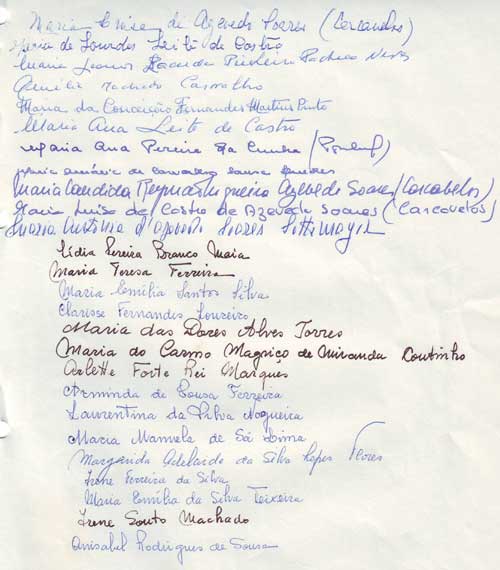 Maria Luisa de Azevedo Soares (Carcavelos)
Maria de Lourdes Leite de Castro
Maria Leonor Lacerda Pinheiro Pacheco Neves
Emilia Machado Carvalho
Maria da Conceição Fernandes Martins Pinto
Maria Ana Leite de Castro
Maria Ana Pereira da Cunha
Maria
Maria Candida Reymão Nogueira Azevedo Soares (Carcavelos)
Maria Luisa de Castro de Azevedo Soares (Carcavelos)
Maria Antónia d'Azevedo Soares Sottomayor
Lídia Pereira Branco Maia
Maria Teresa Ferreira
Maria Emília Santos Silva
Clarisse Fernandes Loureiro
Maria das Dores Alves Torres
Maria do Carmo Magriço de Miranda Coutinho
Arlette Forte Rei Marques
Arminda de Sousa Ferreira
Laurentina da Silva Nogueira
Maria Manuela de Sá Lima
Margarida Adelaide da Silva Lopes Flores
Irene Ferreira da Silva
Maria Emília da Silva Teixeira
Irene Souto Machado
Anisabel Rodrigues de Sousa